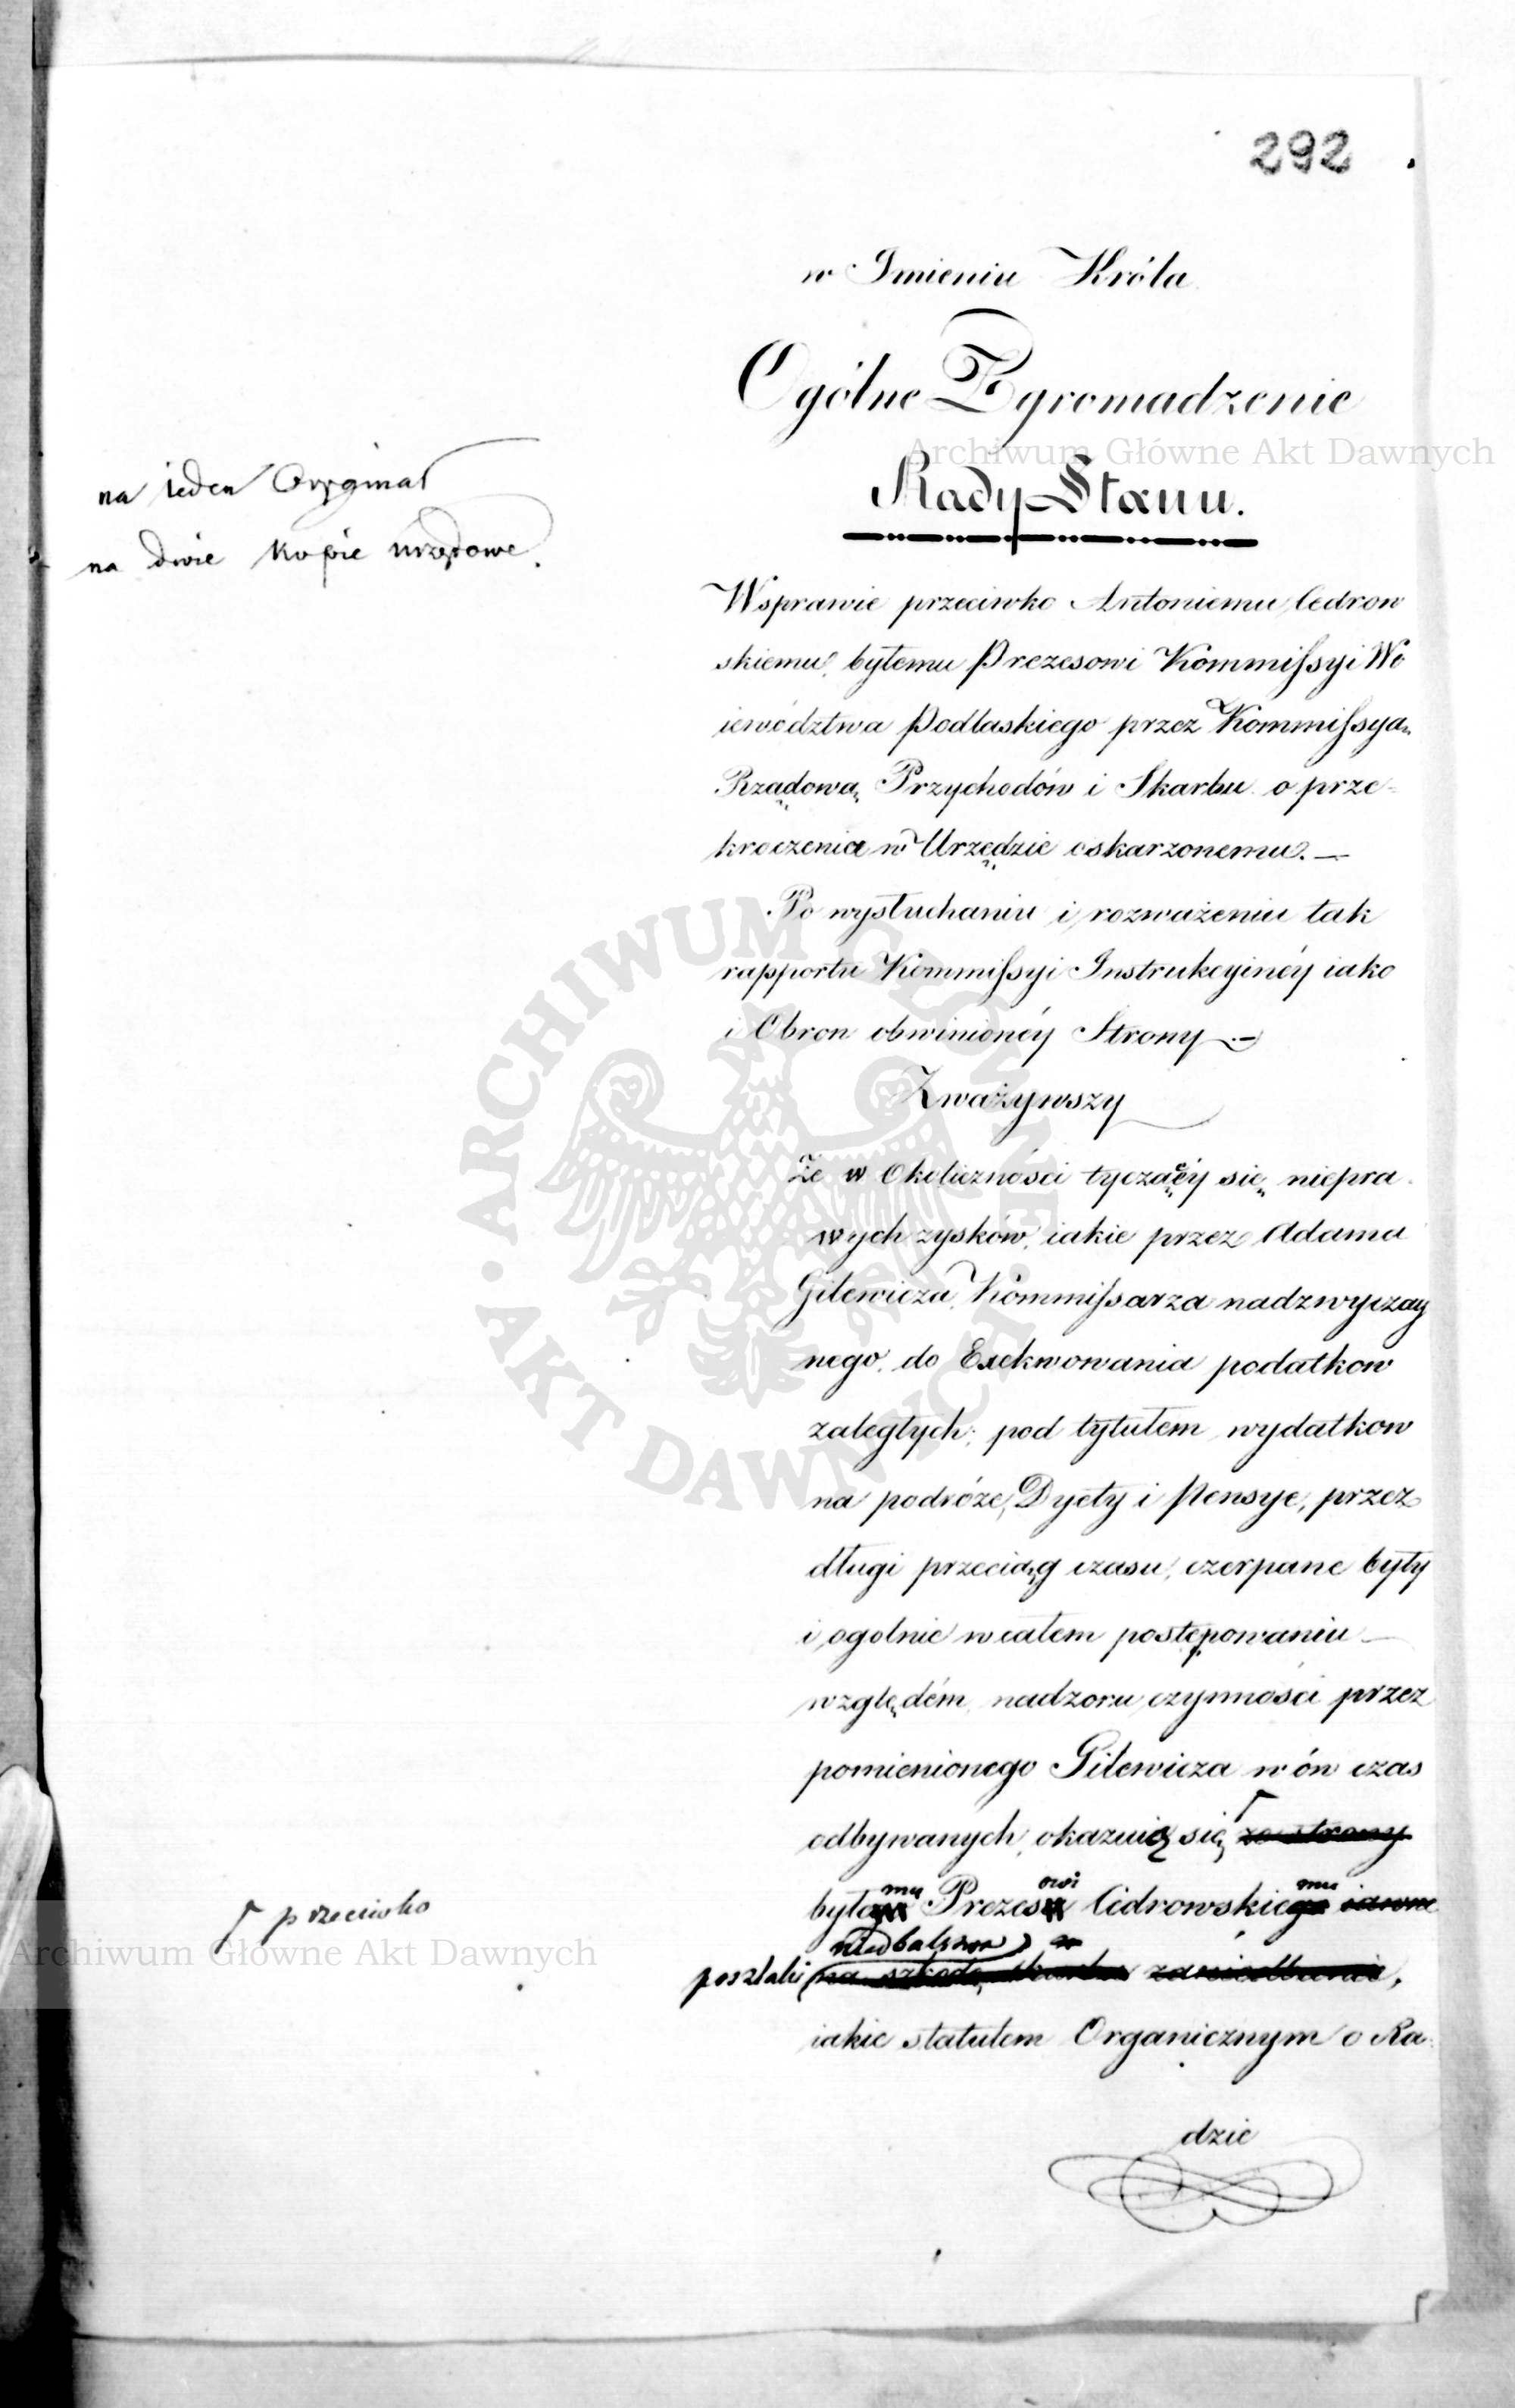 292
w Imieniu Króla
Ogólne Zgromadzenie
Rady Stanu.
na ieden Oryginał
na dwie kopie urzędowe.
Wsprawie przeciwko Antoniemu Cedrow
skiemu, byłemu Prezesowi Kommissyi Wo
iewództwa Podlaskiego przez Kommissyą
Rządową Przychodów i Skarbu o prze-
kroczenia w Urzędzie oskarzonemu. —
Po wysłuchaniu i rozważeniu tak
rapportu Kommissyi Instrukcyinéy iako
i Obron obwinionéy Strony. —
Zważywszy
Że w Okoliczności tyczącéy się niepra
wych zysków, iakie przez Adama
Gilewicza, Kommissarza nadzwyczay
nego, do Exekwowania podatkow
zaległych, pod tytułem wydatkow
na podróże, Dyety i Pensye, przez
długi przeciąg czasu, czerpane były
i ogolnie w całem postępowaniu —
względem nadzoru czynności przez
pomienionego Gilewicza w ów czas
odbywanych, okazuią się ze strony
byłemu Prezesowi Cidrowskiemu iawne
przeciwko
niedbalstwa
poszlaki na szkodę Skarbu zaniedbania,
iakie statutem Organicznym o Ra-
dzie
Archiwum Główne Akt Dawnych
Archiwum Główne Akt Dawnych
ARCHIWUM GŁÓWNE • AKT DAWNYCH •